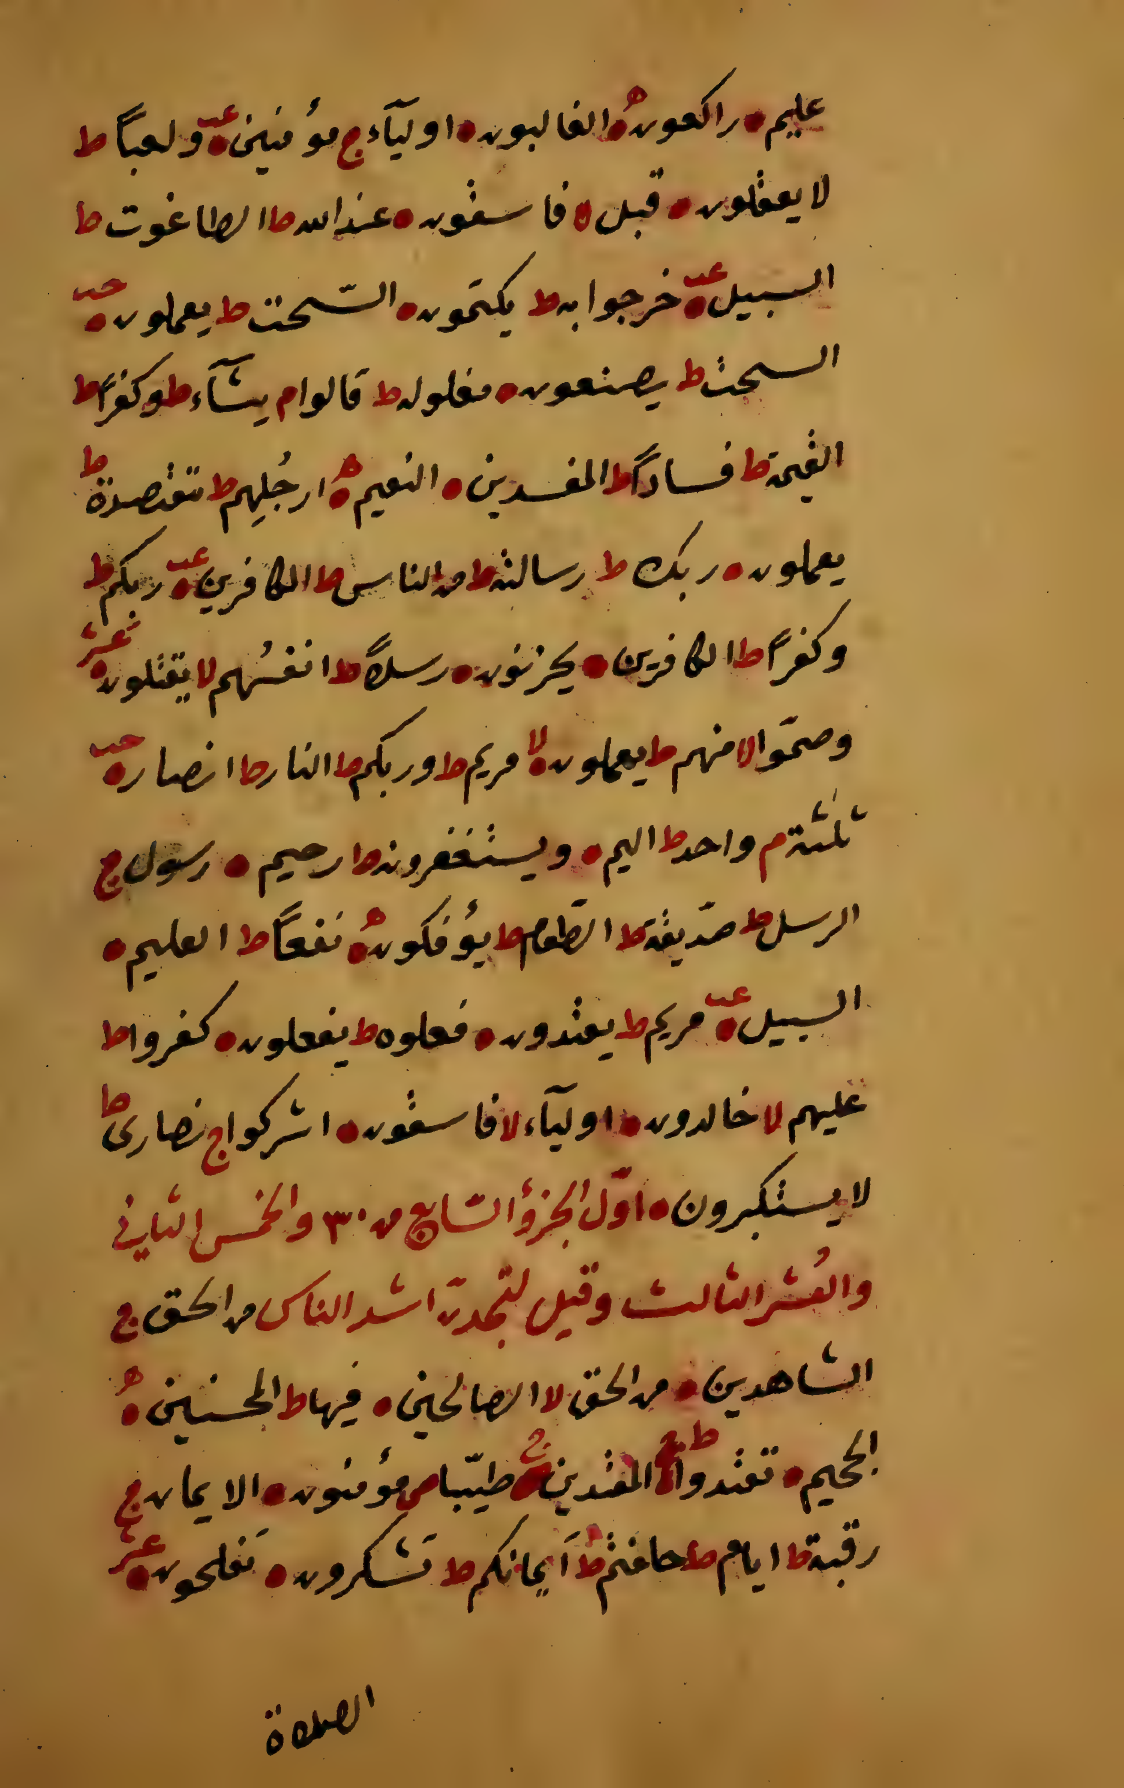 عليم ● راكعون ● ه الغالبون ● اوليآء ج مؤمنين ● عب ولعباً ط
لا يعقلون ● قبل لا فاسقون ● عند الله ط الطاغوت ط
السبيل ● عب خرجوا به ط يكتمون ● السّحت ط يعملون ● خب
السحت ط يصنعون ● مغلولة ط قالوا م يشآء ط وكفراً ط
القيمة ط فساداً ط المفسدين ● النعيم ● ه ارجُلِهم ط مقتصدة ط
يعملون ● ربك ط رسالته ط من الناس ط الكافرين ● عب ربكم ط
وكفراً ط الكافرين ● يحزنون ● رسلاً ط انفسُهم لا يقتلون ● عشر
وصمّوا لا منهم ط يعملون ● لا مريم ط وربكم ط النار ط انصار ● خب
ثلثة م واحد ط اليم ● ويستغفرونه ط رحيم ● رسول ج
الرسل ط صدّيقة ط الطّعام ط يؤفكون ● ه نفعاً ط العليم ●
السبيل ● عب مريم ط يعتدون ● فعلوه ط يفعلون ● كفروا ط
عليهم لا خالدون ● اوليآء لا فاسقون ● اشركوا ج نصارى ط
لا يستكبرون ● اوّل الجزؤ السّابع من ٣٠ والخمس الثاني
والعُشر الثالث وقيل لتجدنّ اشد الناس من الحق ج
الشاهدين ● من الحق لا الصالحين ● فيها ط المحسنين ● ه
الجحيم ● تعتدوا ط المعتدين ● طيّبا ص مؤمنون ● الايمان ج
رقبة ط ايام ط حلفتم ط أيمانكم ط تشكرون ● تفلحون ● عشر
الصلاة